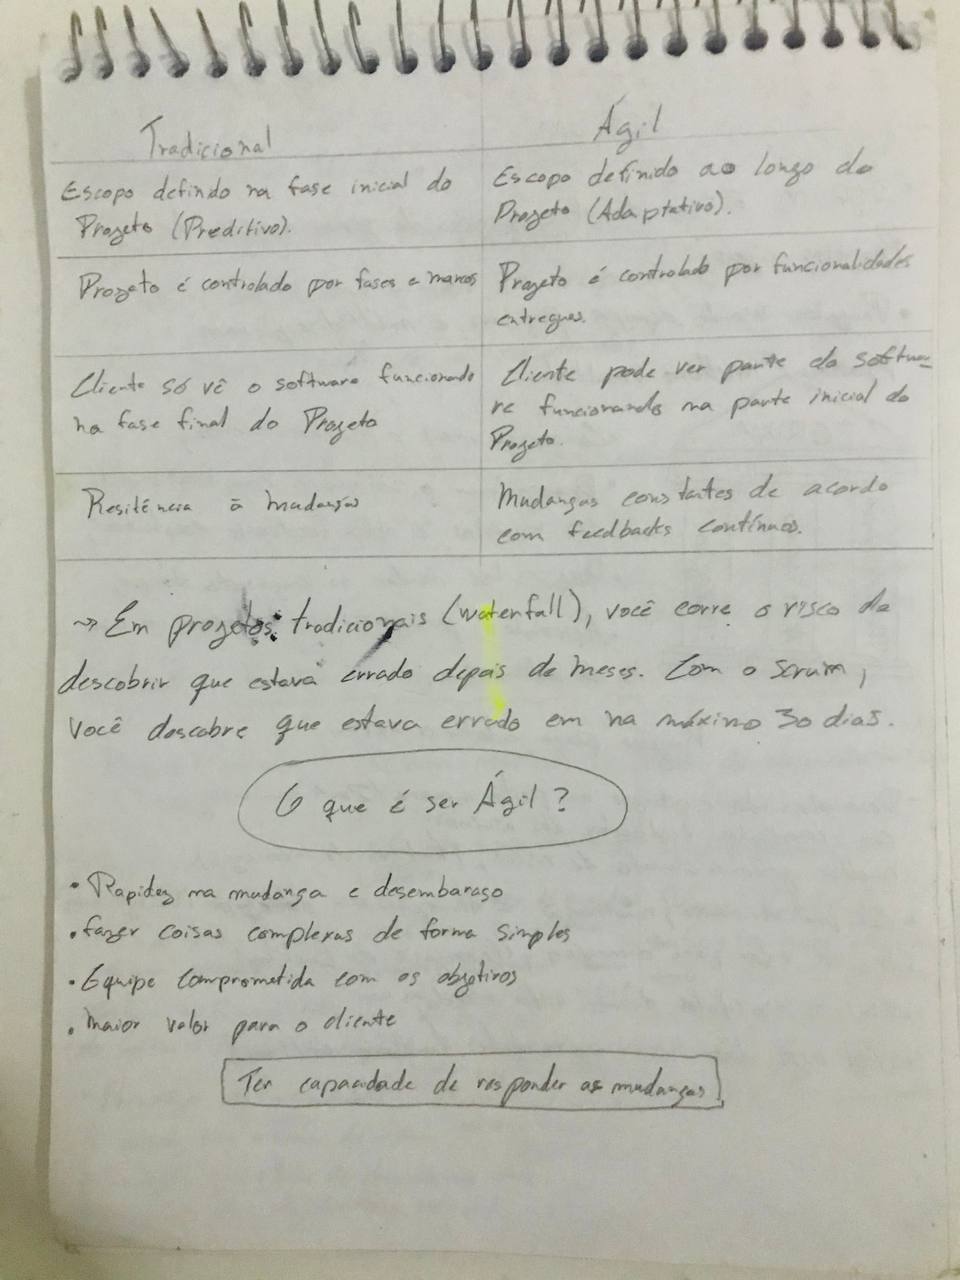 Tradicional
Ágil
Escopo defindo na fase inicial do
Projeto (Preditivo).
Escopo definido ao longo do
Projeto (Adaptativo).
Projeto é controlado por fases e marcos
Projeto é controlado por funcionalidades
entregues.
Cliente só vê o software funcionando
na fase final do Projeto
Cliente pode ver parte do softwa-
re funcionando na parte inicial do
Projeto.
Resitência à mudanças
Mudanças constates de acordo
com feedbacks contínuos.
~> Em projetos tradicionais (waterfall), você corre o risco de
descobrir que estava errado depois de meses. Com o scrum,
você descobre que estava errado em na máximo 30 dias.
O que é ser Ágil?
• Rapidez na mudança e desembaraço
• fazer coisas complexas de forma simples
• Equipe comprometida com os objetivos
• maior valor para o cliente
Ter capacidade de responder as mudanças.